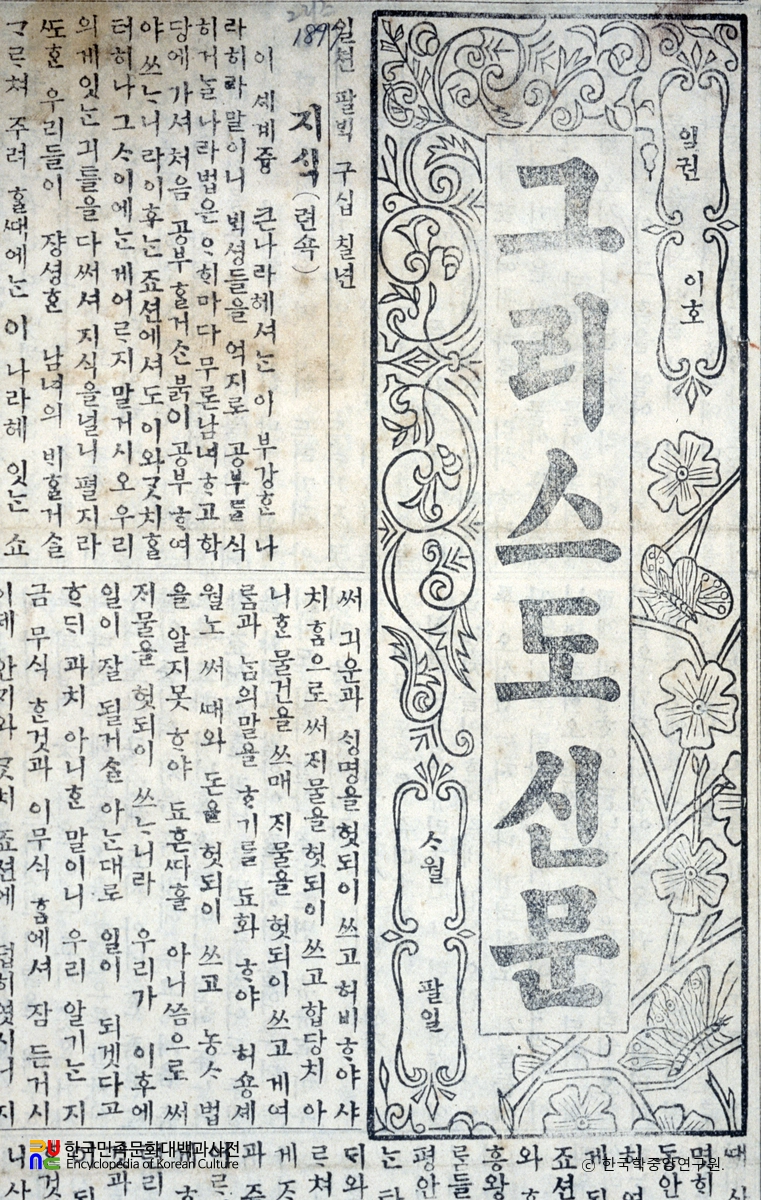 일권 이호
그리스도신문
ᄉᆞ월 팔일
1897
일쳔 팔ᄇᆡᆨ 구십 칠년
지식 (련쇽)
이 세계즁 큰나라헤셔ᄂᆞᆫ 이 부강ᄒᆞᆫ 나
라히라 말이니 ᄇᆡᆨ셩들을 억지로 공부를 식
히거ᄂᆞᆯ 나라법은 ᄋᆞᄒᆡ마다 무론남녀ᄒᆞ고 학
당에 가셔 처음 공부ᄒᆞᆯ거ᄉᆞᆫ 붉이 공부ᄒᆞ여
야 쓰ᄂᆞ니라 이후ᄂᆞᆫ 죠션에셔도 이와ᄀᆞᆺ치ᄒᆞᆯ
터히나 그ᄉᆞ이에ᄂᆞᆫ 게어르지 말거시오 우리
의게잇ᄂᆞᆫ 긔들을 다써셔 지식을널니 펼지라
ᄯᅩᄒᆞᆫ 우리들이 쟝셩ᄒᆞᆫ 남녀의 ᄇᆡ홀거슬
ᄀᆞᄅᆞ쳐 주려 ᄒᆞᆯᄯᅢ에ᄂᆞᆫ 이 나라헤 잇ᄂᆞᆫ 쇼
써 긔운과 ᄉᆡᆼ명을 헛되이 쓰고 허비ᄒᆞ야 샤
치홈으로써 ᄌᆡ물을 헛되이 쓰고 합당치 아
니ᄒᆞᆫ 물건을 쓰매 ᄌᆡ물을 헛되이 쓰고 게여
름과 ᄂᆞᆷ의말을 ᄒᆞ기를 됴화 ᄒᆞ야 허숑셰
월노 써 ᄯᅢ와 돈을 헛되이 쓰고 농ᄉᆞ 법
을 알지못 ᄒᆞ야 됴흔ᄯᅡ흘 아니씀으로 써
ᄌᆡ물을 헛되이 쓰ᄂᆞ니라 우리가 이후에
일이 잘 될거ᄉᆞᆯ 아ᄂᆞᆫ대로 일이 되겟다고
ᄒᆞᆫ듸 과치 아니ᄒᆞᆫ 말이니 우리 알기ᄂᆞᆫ 지
금 무식 ᄒᆞᆫ것과 이무식 홈에셔 잠 든거시
한국민족문화대백과사전
Encyclopedia of Korean Culture
ⓒ 한국학중앙연구원.